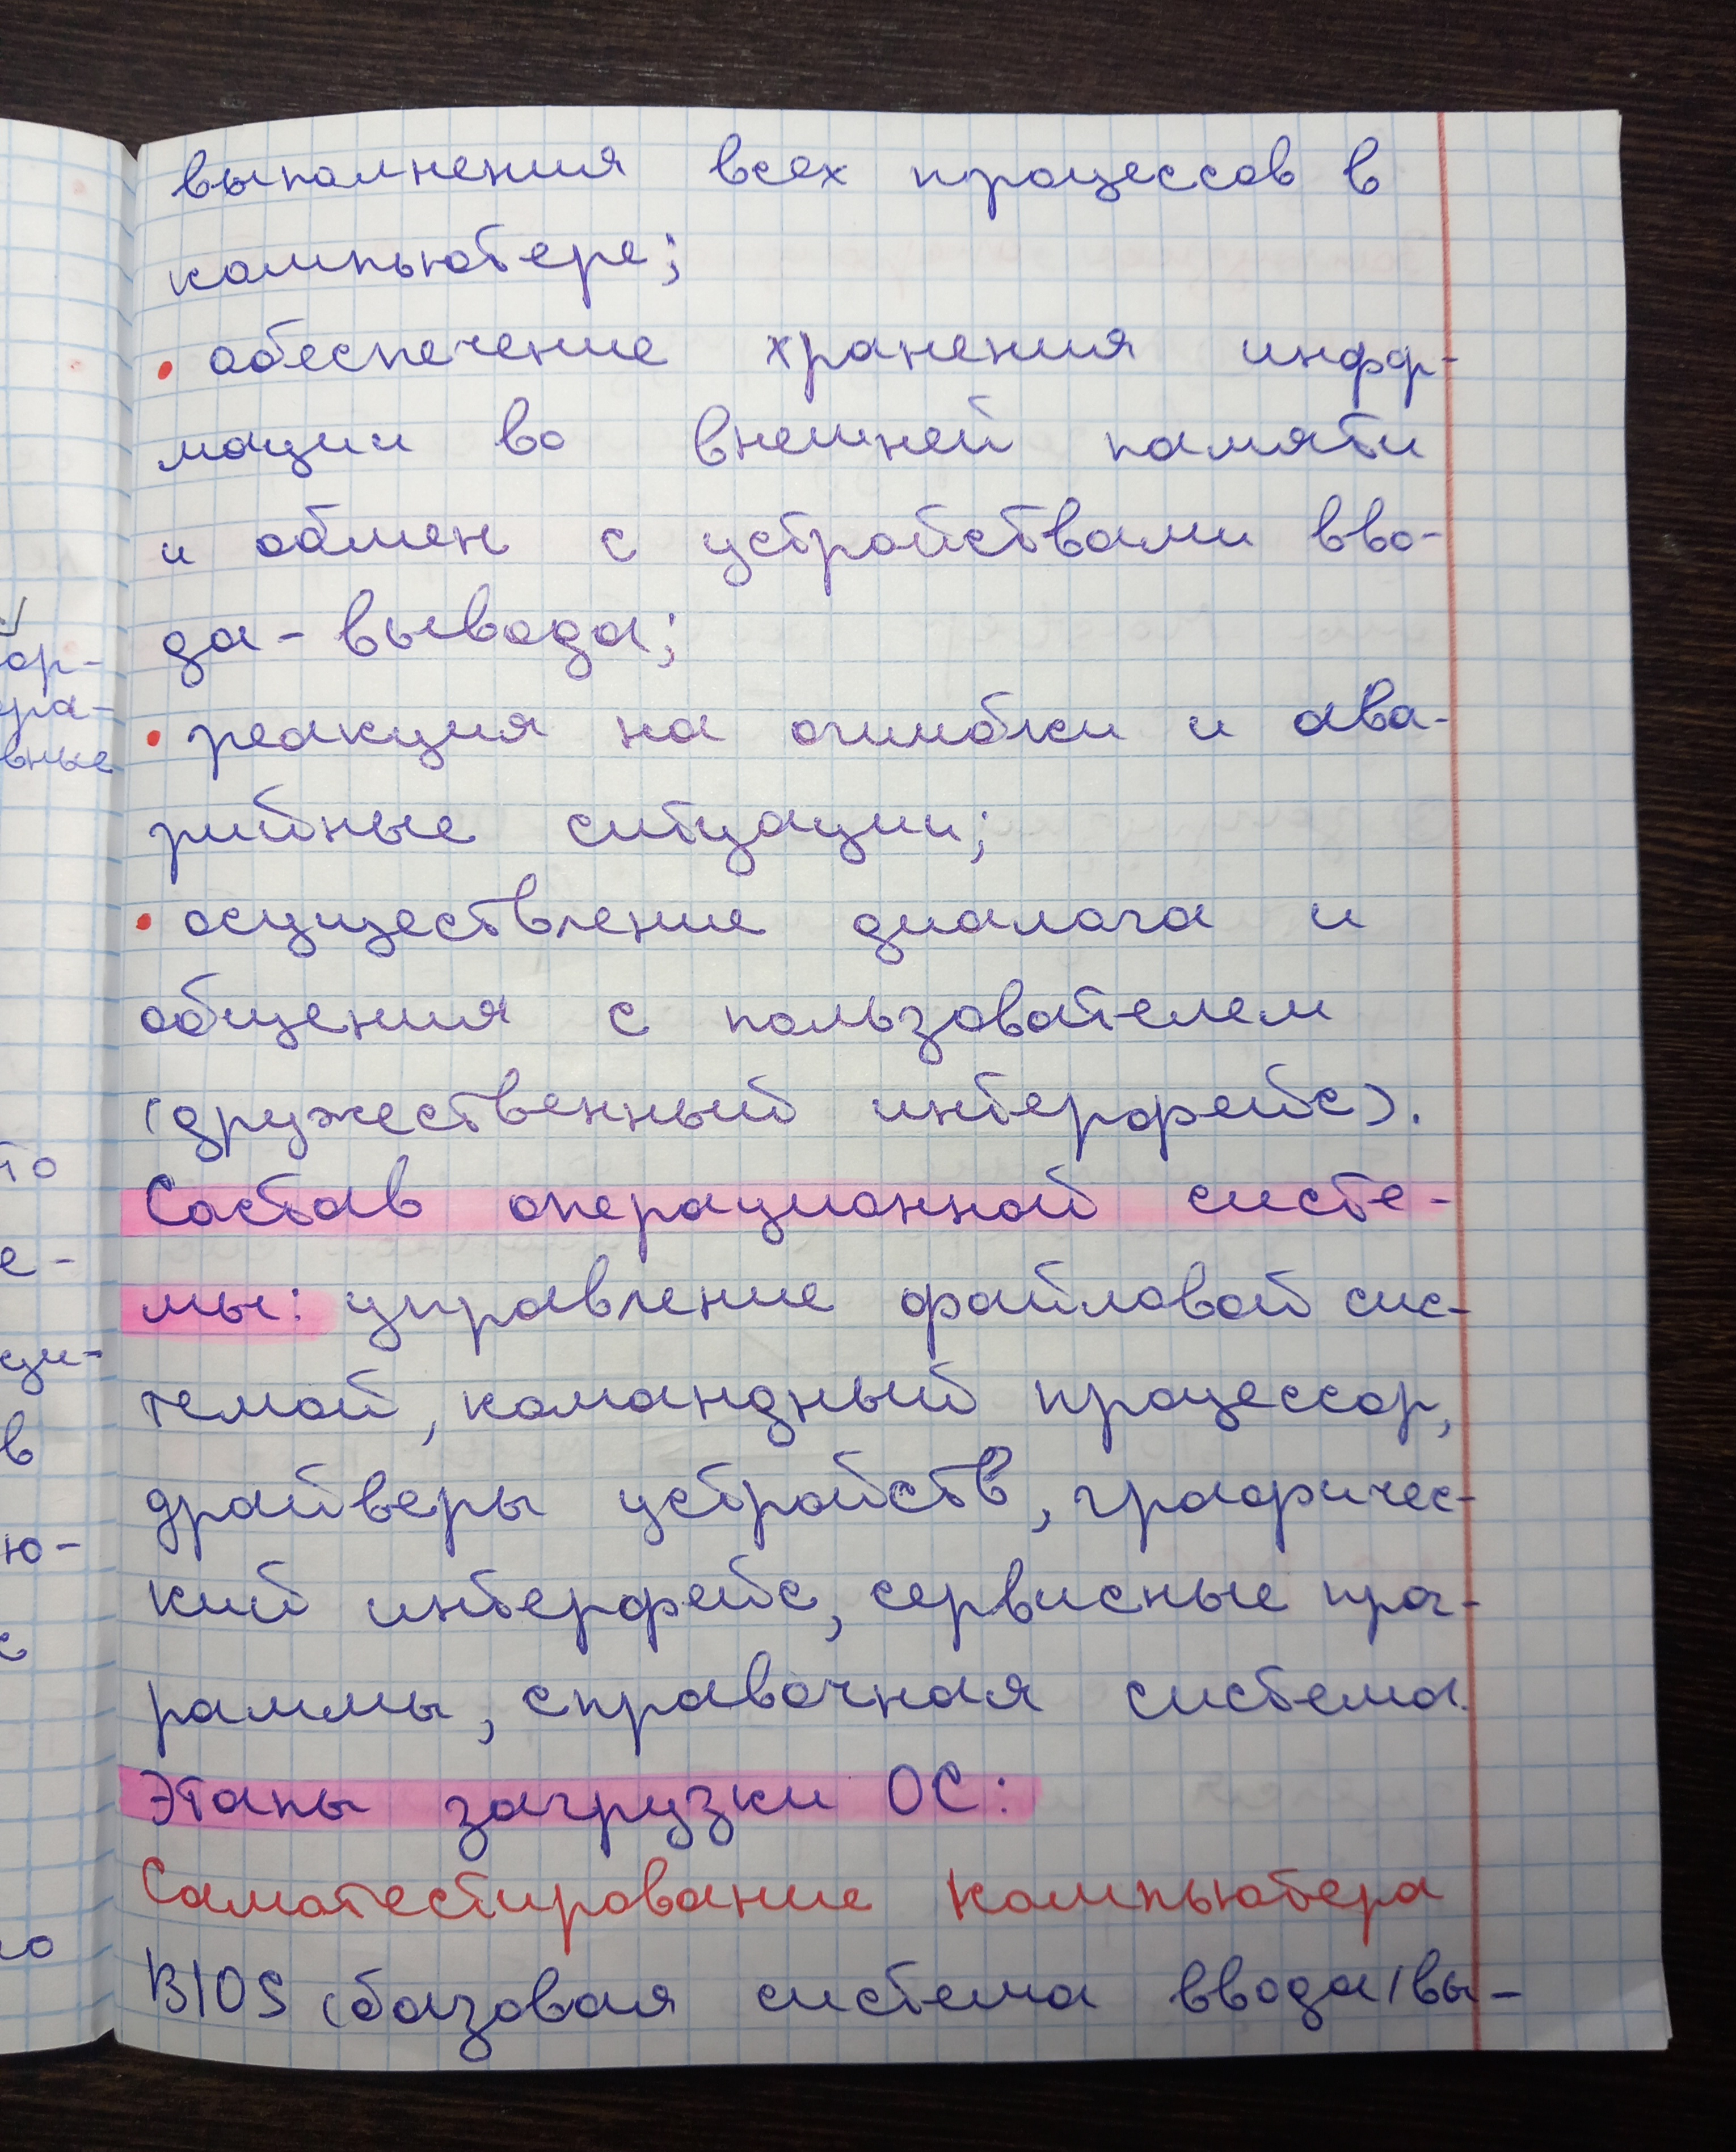 выполнения всех процессов в
компьютере;
• обеспечение хранения инфор-
мации во внешней памяти
и обмен с устройствами вво-
да-вывода;
• реакция на ошибки и ава-
рийные ситуации;
• осуществление диалога и
общения с пользователем
(дружественный интерфейс).
Состав операционной систе-
мы: управление файловой сис-
темой, командный процессор,
драйверы устройств, графичес-
кий интерфейс, сервисные прог-
раммы, справочная система.
Этапы загрузки ОС:
Самотестирование компьютера
BIOS (базовая система ввода/вы-